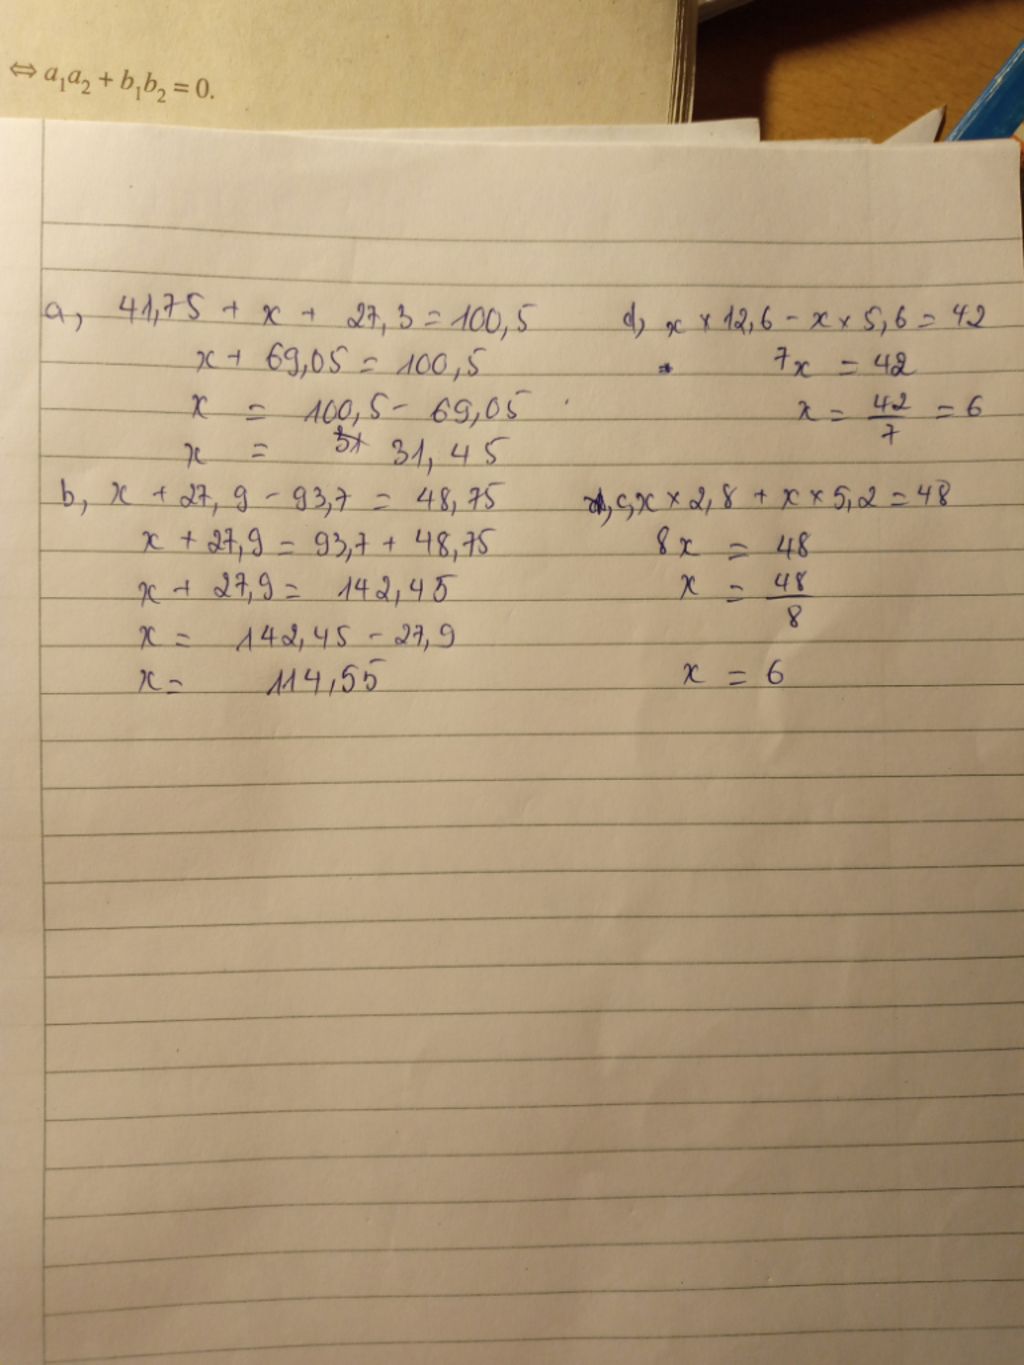 ⇔ a₁a₂ + b₁b₂ = 0.
a, 41,75 + x + 27,3 = 100,5
x + 69,05 = 100,5
x = 100,5 - 69,05
x = 31,45
b, x + 27,9 - 93,7 = 48,75
x + 27,9 = 93,7 + 48,75
x + 27,9 = 142,45
x = 142,45 - 27,9
x = 114,55
d, x × 12,6 - x × 5,6 = 42
7x = 42
x = 42/7 = 6
c, x × 2,8 + x × 5,2 = 48
8x = 48
x = 48/8
x = 6